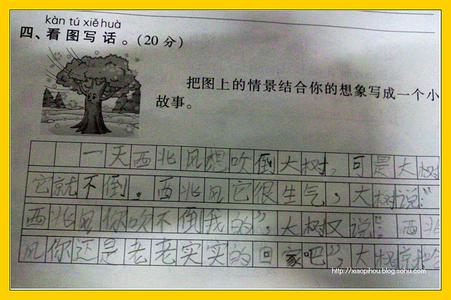 kàn tú xiě huà
四、看图写话。(20分)
把图上的情景结合你的想象写成一个小
故事。
一天西北风想吹倒大树，可是大树
它就不倒。西北风它很生气，大树说“
西北风你吹不倒我的”，大树又说：“西北
风你还是老老实实的回家吧”，大树就哈
http://xiaopihou.blog.sohu.com